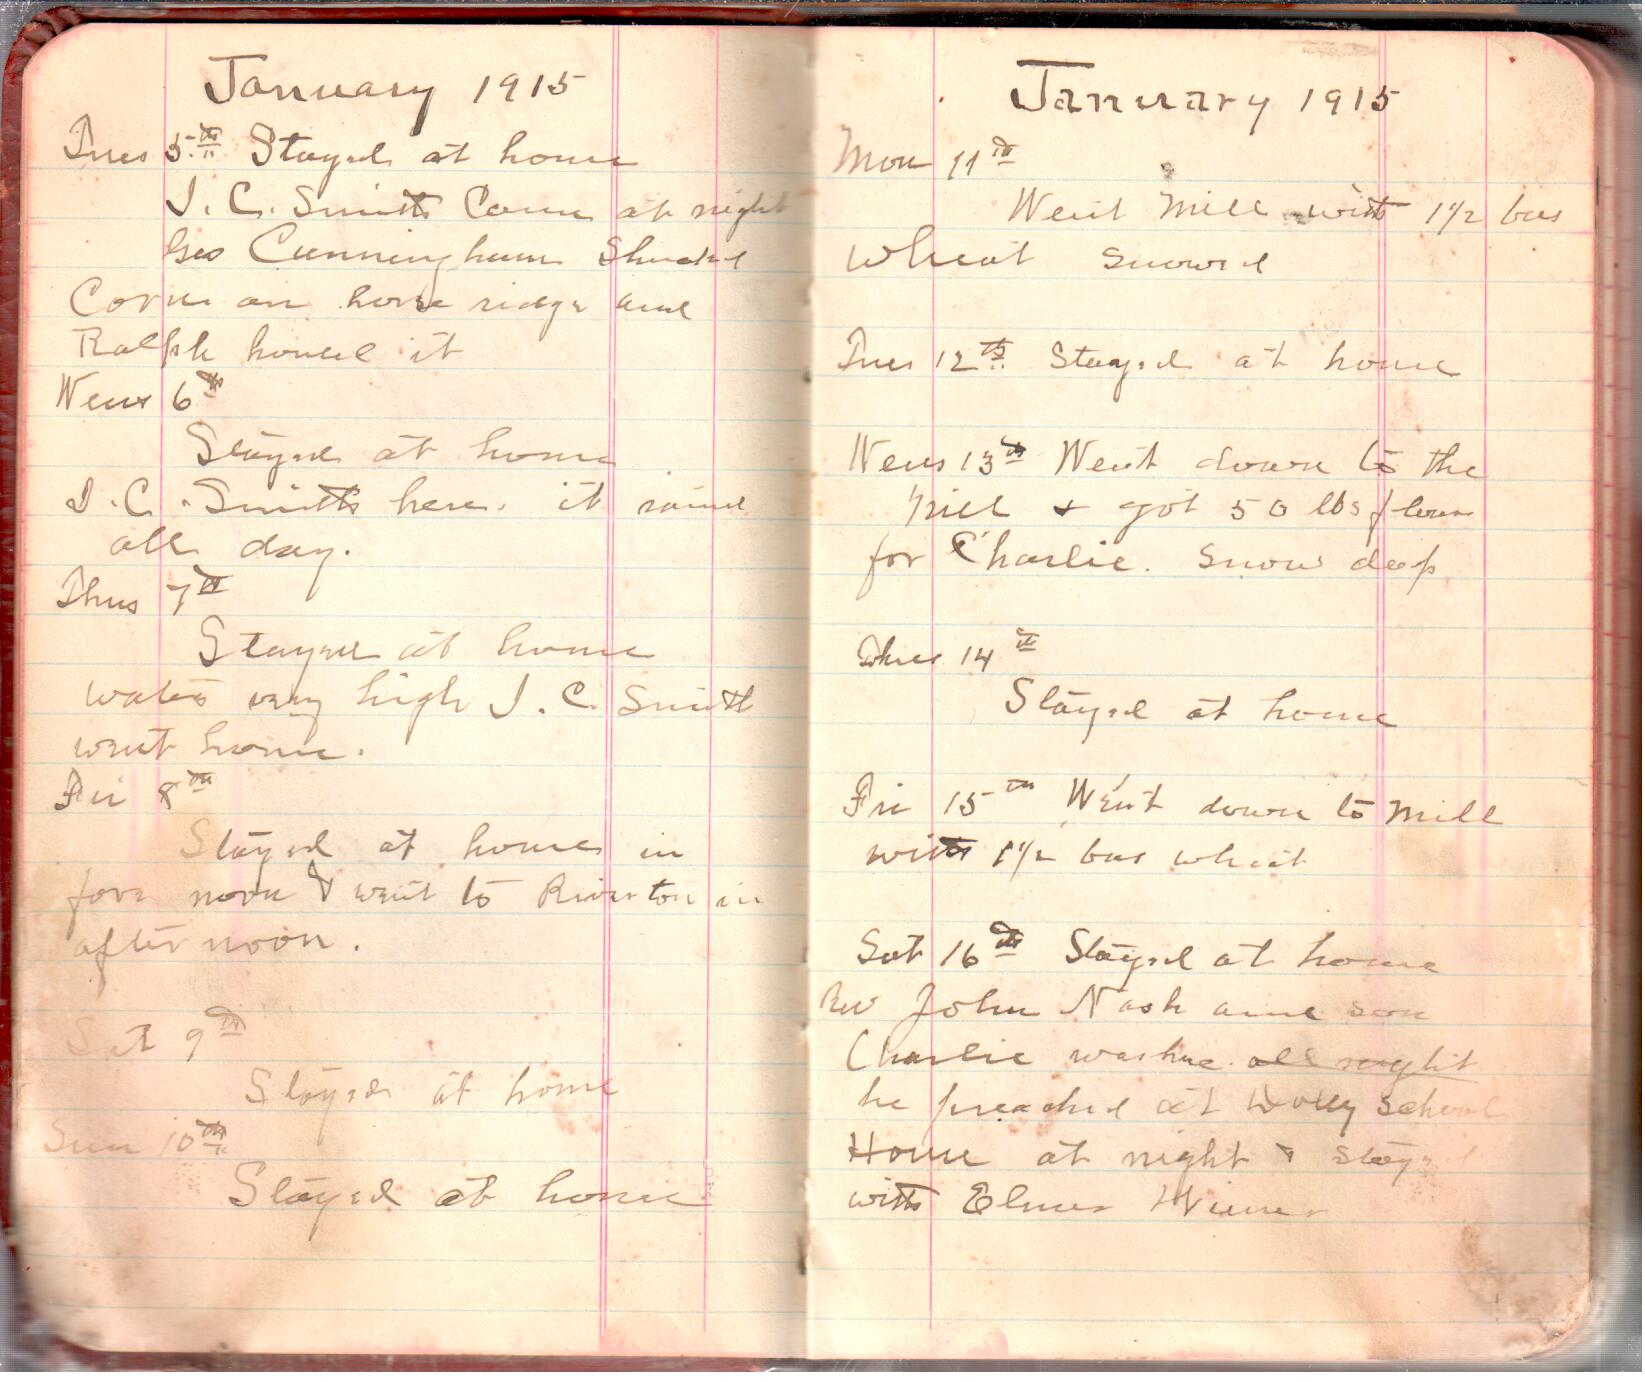 January 1915
Tues 5th Stayed at home
J. C. Smith Come at night
Geo Cunningham Shucked
Corn on horse ridge and
Ralph houled it
Wens 6th
Stayed at home
J. C. Smith here. it raind
all day.
Thus 7th
Stayed at home
water very high J. C. Smith
went home.
Fri 8th
Stayed at home in
fore noon & went to Riverton in
after noon.
Sat 9th
Stayed at home
Sun 10th
Stayed at home
January 1915
Mon 11th
Went Mill with 1 1/2 bus
wheat snowed
Tues 12th Stayed at home
Wens 13th Went down to the
Mill & got 50 lbs flour
for Charlie. Snow deep
Thus 14th
Stayed at home
Fri 15th Went down to Mill
with 1 1/2 bus wheat
Sat 16th Stayed at home
Rev John Nash and son
Charlie was here all night
he preached at School
House at night & stayed
with Elmer